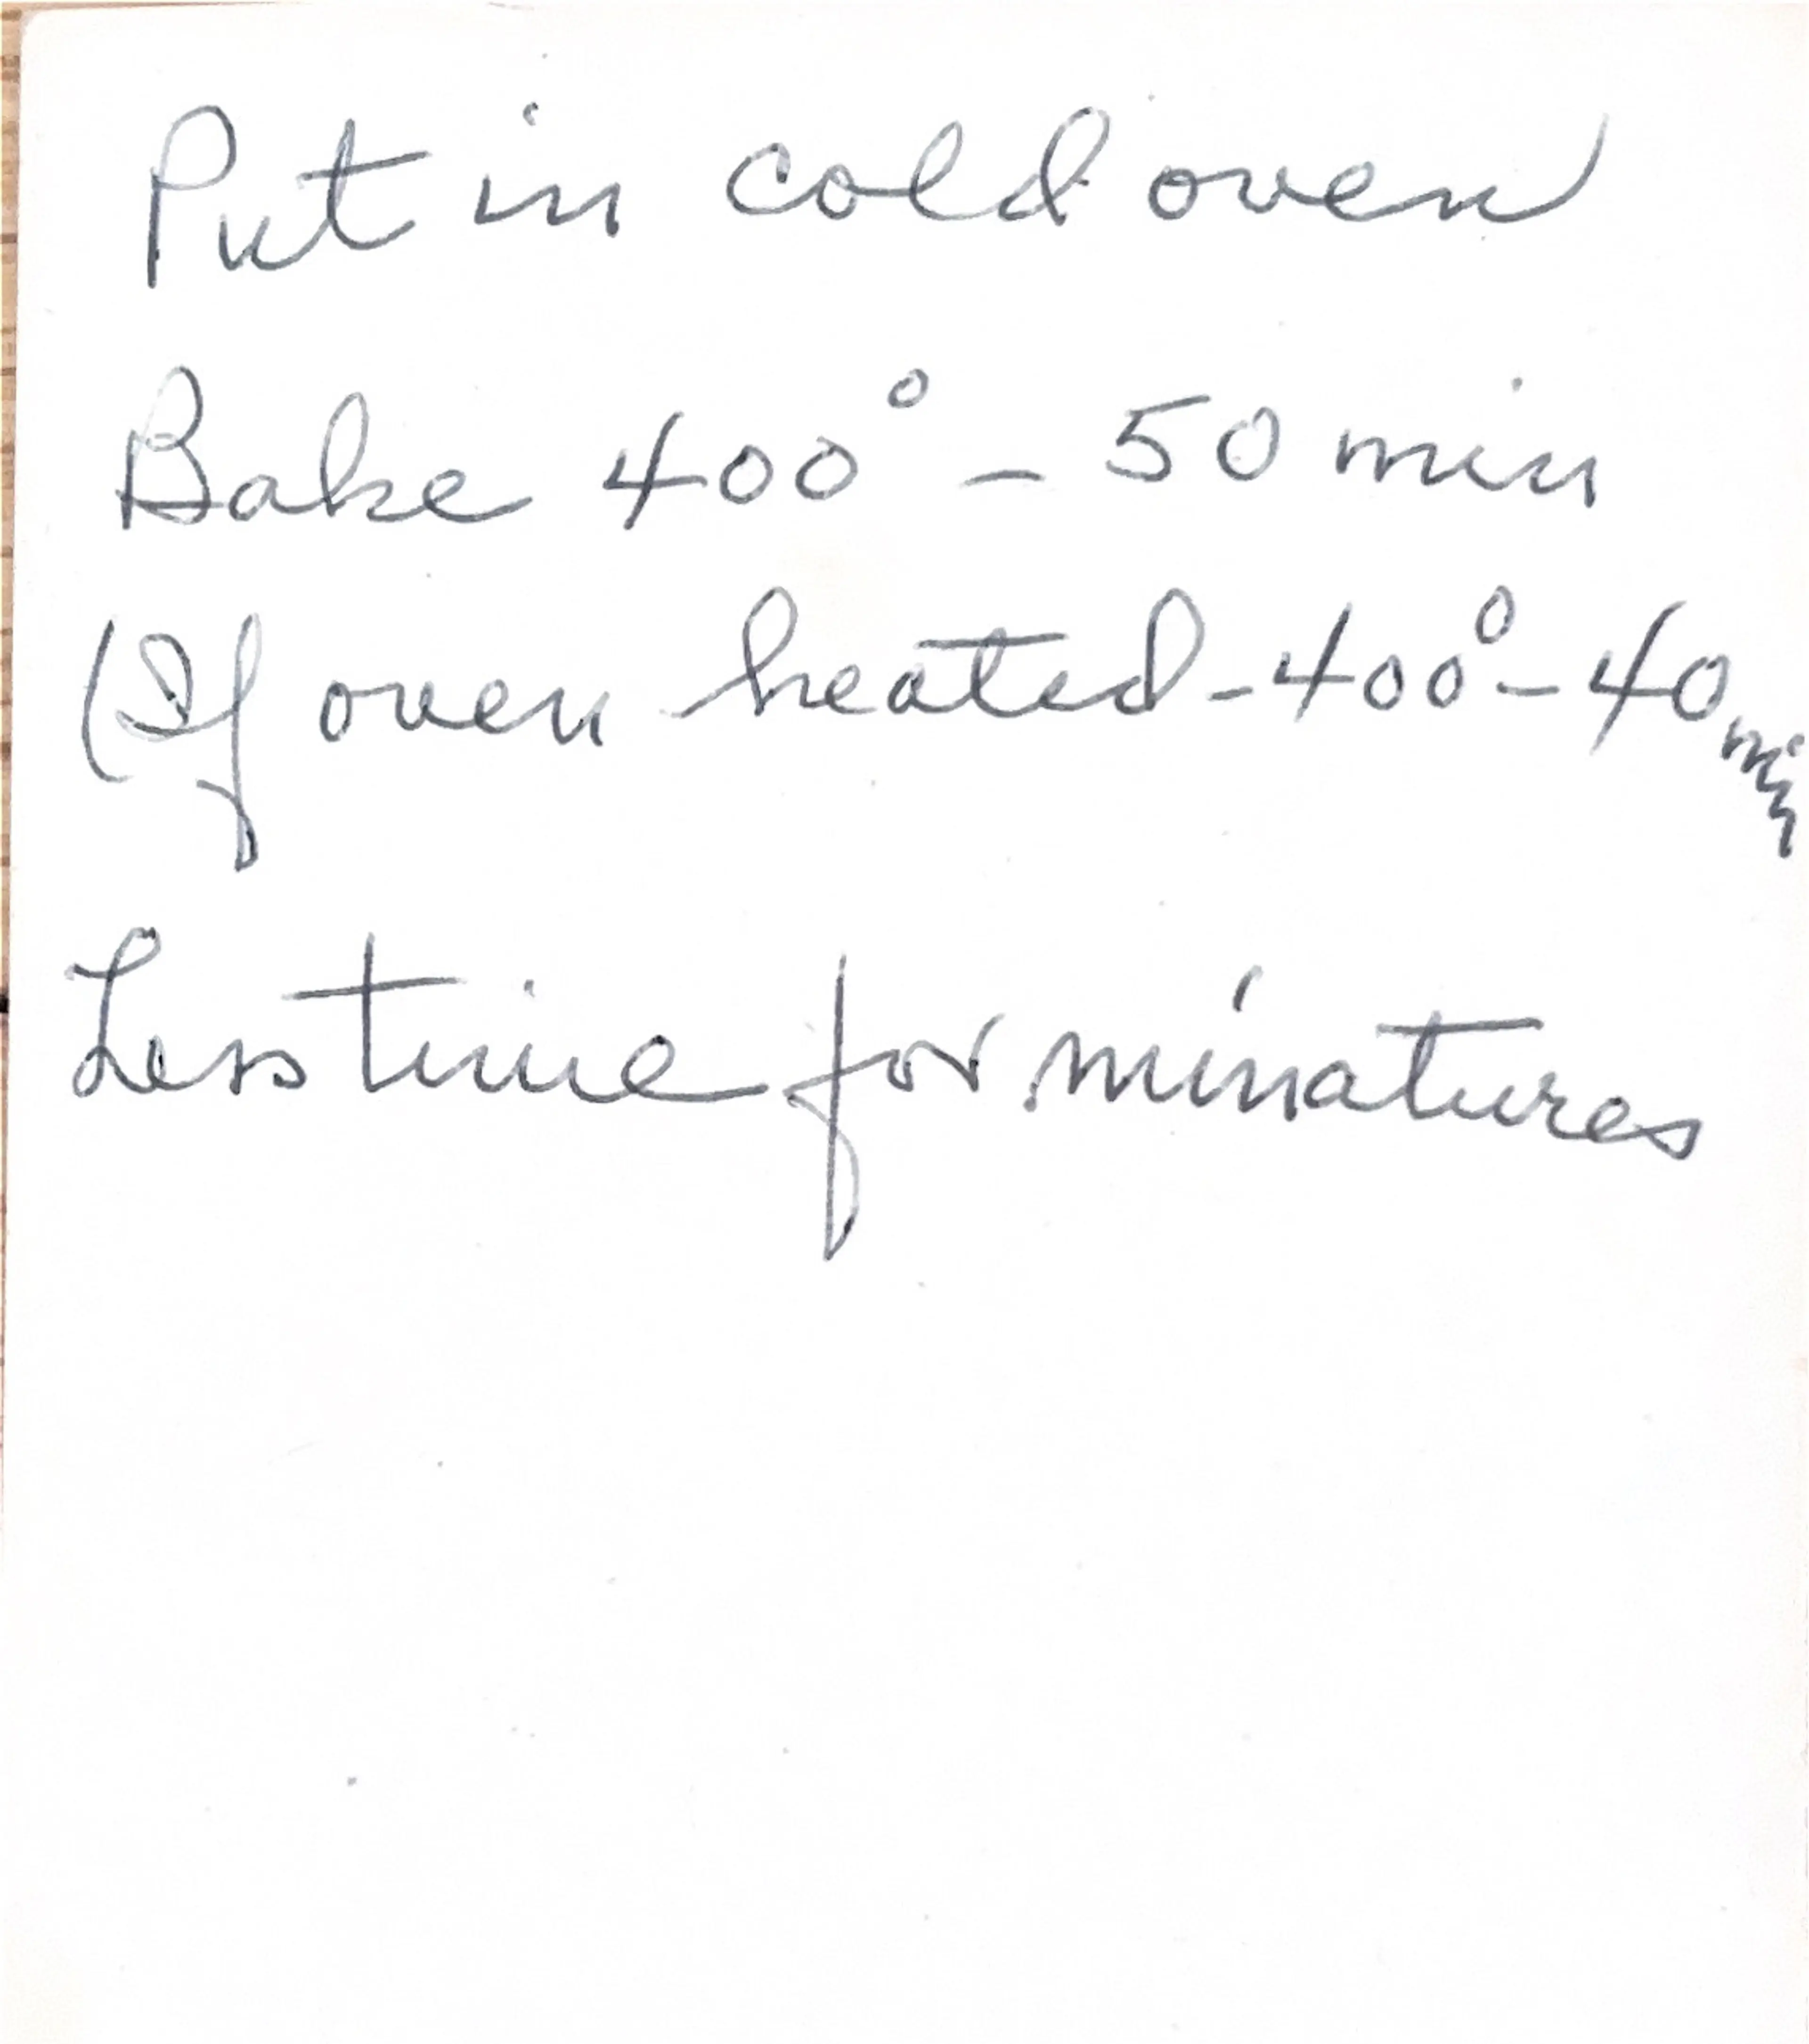 Put in cold oven
Bake 400° - 50 min
(If oven heated - 400° - 40 min
Less time for minatures